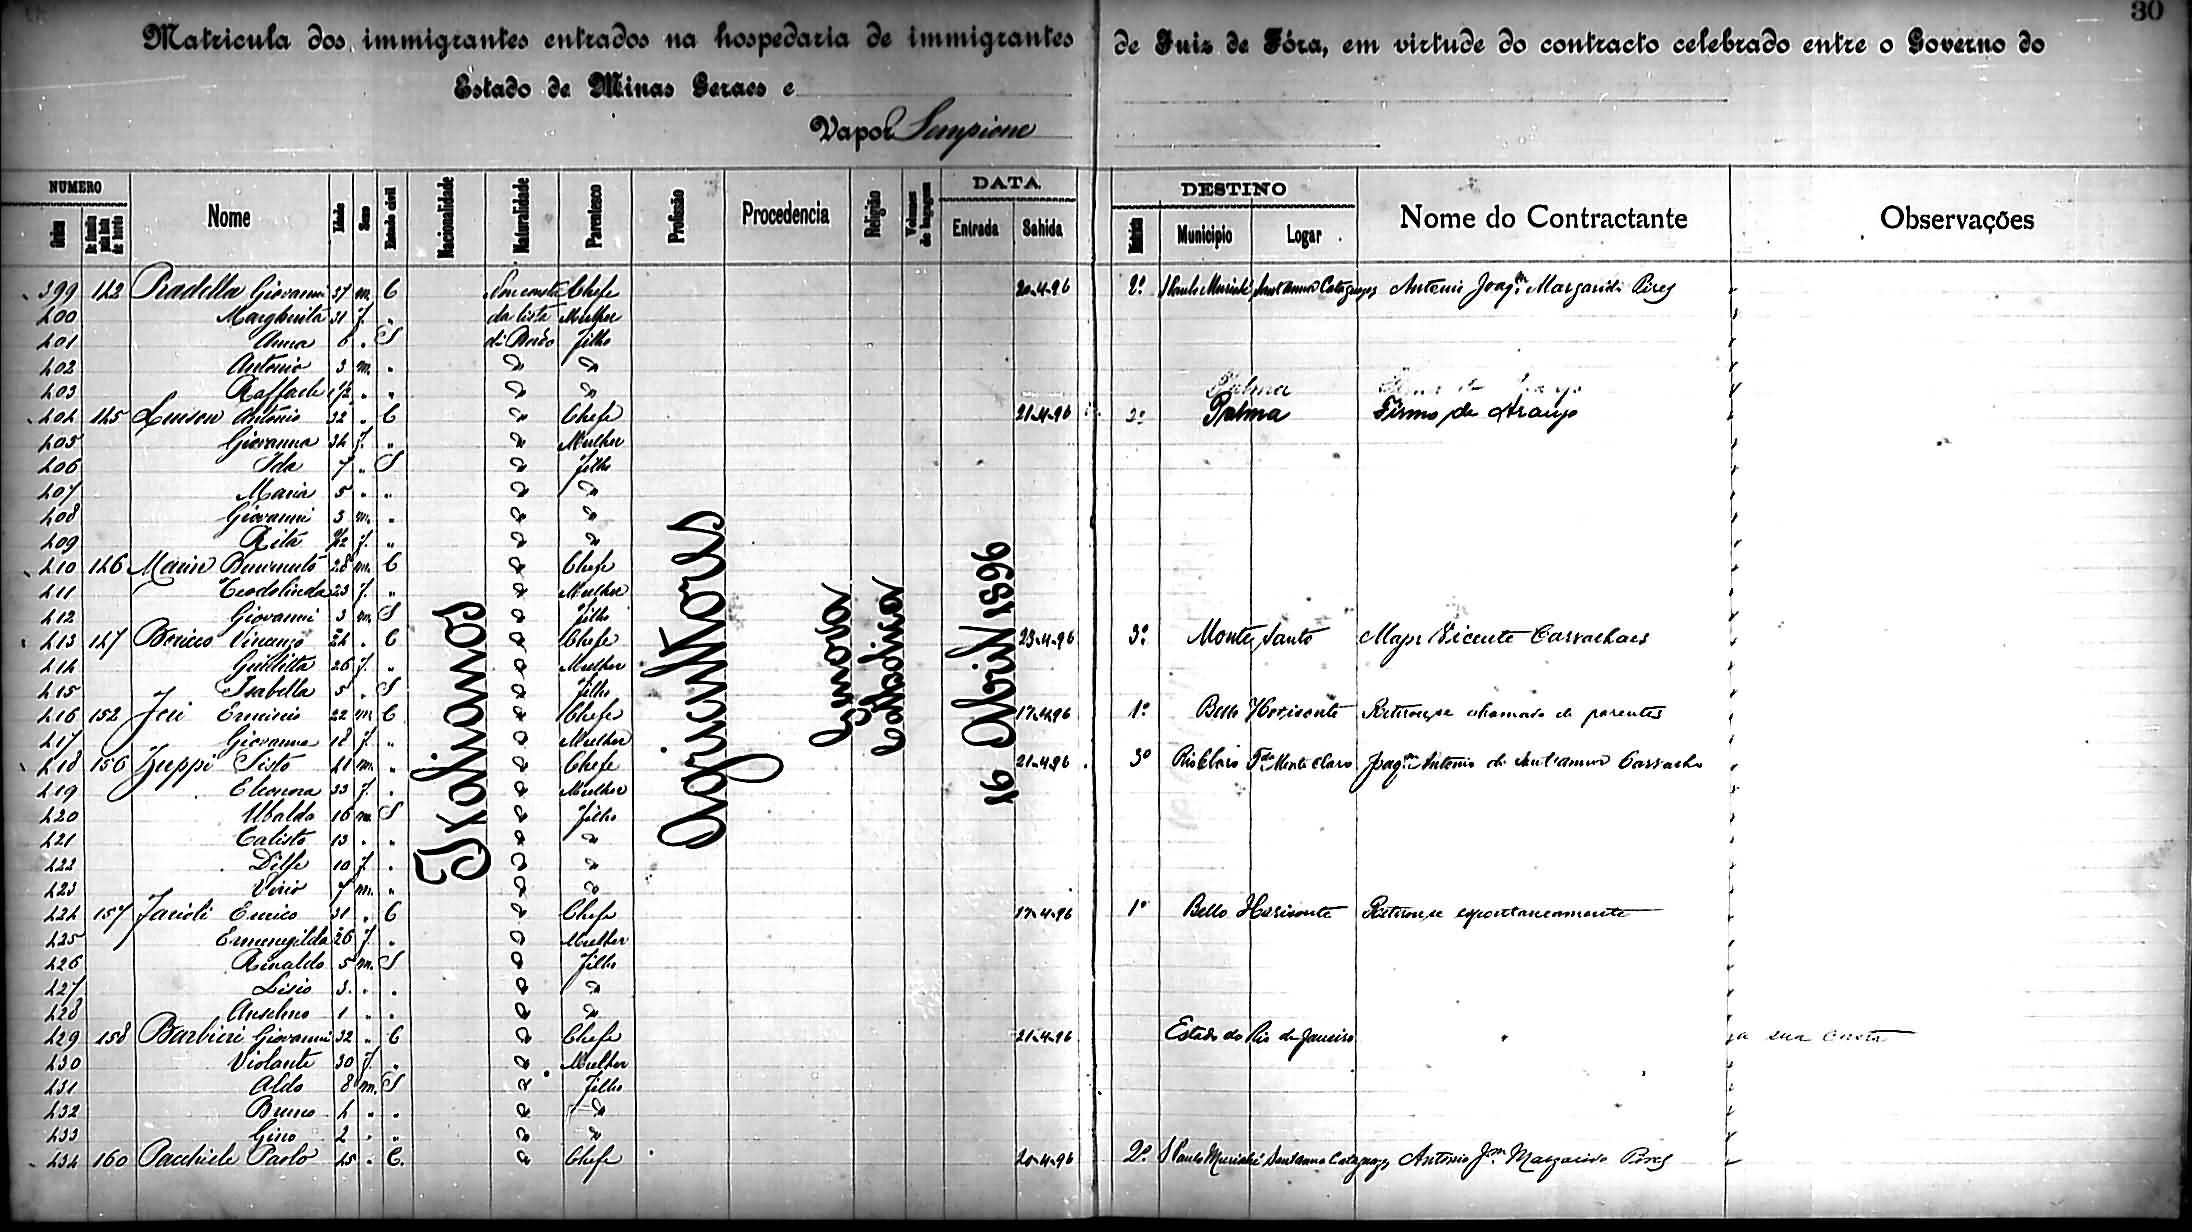 30
Matricula dos immigrantes entrados na hospedaria de immigrantes de Juiz de Fóra, em virtude do contracto celebrado entre o Governo do
Estado de Minas Geraes e
Vapor Sempione
NUMERO DATA DESTINO
Ordem Nome Idade Sexo Estado civil Nacionalidade Naturalidade Parentesco Profissão Procedencia Religião Volumes de bagagem Entrada Sahida Municipio Logar Nome do Contractante Observações
Italianos Agricultores Genova Catholica 16 Abril 1896
399 142 Giovanni 37 m. C Non consta Chefe 20-4-96 2º S Paulo Muriahé Sant'Anna Cataguazes Antonio Joaqm Margarido Pires
400 Margherita 31 f. " da lista Mulher
401 Anna 6 . S di Bordo filho
402 Antonio 3 m. "
403 Raffaele 1/2 " " Palma
404 145 Luison Antonio 32 " C " Chefe 21-4-96 3º Palma Firmo de Araujo
405 Giovanna 34 f. " " Mulher
406 Ida 7 " S " filho
407 Maria 5 . " "
408 Giovanni 3 m. " "
409 Rita f. " "
410 146 Marin Benvenuto 28 m. C " Chefe
411 Teodolinda 23 f. " " Mulher
412 Giovanni 3 m. S " filho
413 147 Vincenzo 24 . C " Chefe 23-4-96 3º Monte Santo Major Vicente Carvalhaes
414 Giulitta 26 f. " " Mulher
415 Isabella 5 . S " filho
416 152 Erminio 22 m C " Chefe 17-4-96 1º Bello Horisonte Retirou-se chamado de parentes
417 Giovanna 18 f. " " Mulher
418 156 Zuppi Sisto 41 m. " " Chefe 21-4-96 3º Rio Claro Fda Monte Claro Joaqm Antonio de Sant'anna Carvalho
419 Eleonora 33 f. . " Mulher
420 Ubaldo 16 m. S " filho
421 Calisto 13 . " " "
422 10 f. . " "
423 7 m. " " "
424 157 Farioli Enrico 31 . C " Chefe 17-4-96 1º Bello Horisonte Retirou-se espontaneamente
425 Ermenegilda 26 f. " " Mulher
426 Rinaldo 5 m. S " filho
427 Lisio 3 . . " "
428 Anselmo 1 " . " "
429 158 Barbieri Giovanni 32 " C " Chefe 21-4-96 Estado do Rio de Janeiro " a sua custa
430 Violante 30 f. " " Mulher
431 Aldo 8 m. S " filho
432 Bruno 4 " . " "
433 Gino 2 . " " "
434 160 Paolo 45 . C. " Chefe 20-4-96 2º S Paulo Muriahé Sant'anna Cataguazes Antonio Jm Margarido Pires